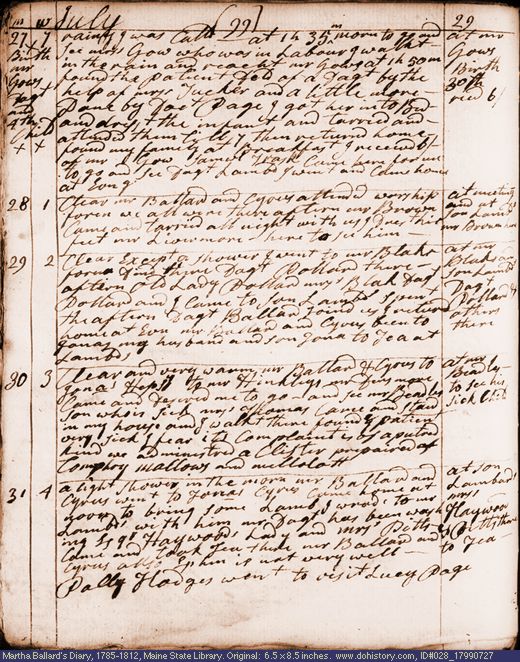 m w July [29] 29
27 7 rainy I was Calld at 1 h 35 m morn to go and
Birth see mrs Gow who was in Labour I walkt
mr in the rain and reacht mr Gows at 1 h 50 m
Gows found the patient Deld of a Dagt by the
Dagt help of mrs Tucker and a little more
and I got her into Bed
4th and drest the infant and tarried and
Child attend them till then returnd home
X X found my famely at Breakfast I receivd 6/
of mr Gow Came here for me
to go and see Dagt Lamb I went and Came home
at Evng
at mr
Gows
Birth
30th
recd 6/
28 1 Clear mr Ballard and Cyrus attend worship
foren we all were there aftern mr Brown
Came and tarried all night with us
mr Livermore here to see him
at meeting
and at
son Lambs
mr Brown here
29 2 Clear Except a shower I went to mr Blaks
foren Dagt Pollard there
aftern old Lady Pollard mrs Blak Dagt
Pollard and I Came to son Lambs spent
the aftern Dagt Ballard there I returnd
home at Evn mr Ballard and Cyrus been to
Jonas my husband and son Jona to Tea at
Lambs
at mr
Blaks and
son Lambs
Dagt
Pollard &
others
there
30 3 Clear and very warm mr Ballard & Cyrus to
Jonas to mr Hinkleys
Came and desird me to go and see mr Beadles
son who is sick mrs Thomas Came and
in my house and I walkt there found patient
very sick I fear its Complaint is of a putred
kind we administred a Clister prepaired of
Comphry mallows and
at mr
Beadly
to see his
sick Child
31 4 a light shower in the morn mr Ballard and
Cyrus went to Jonas Cyrus Came home at
noon to bring some Lamb I went to mr
Lambs with him my Dagt has been wash
ing Esqr Haywoods Lady and mrs Pitts
Came and took Tea there mr Ballard and
Cyrus also Ephm is not very well
Polly Hodges went to visit Lucy Page
at son
Lambards
mrs
Haywood
& Pitts there
to Tea
Martha Ballard's Diary, 1785-1812, Maine State Library. Original: 6.5 x 8.5 inches. www.dohistory.com, ID#028_17990727